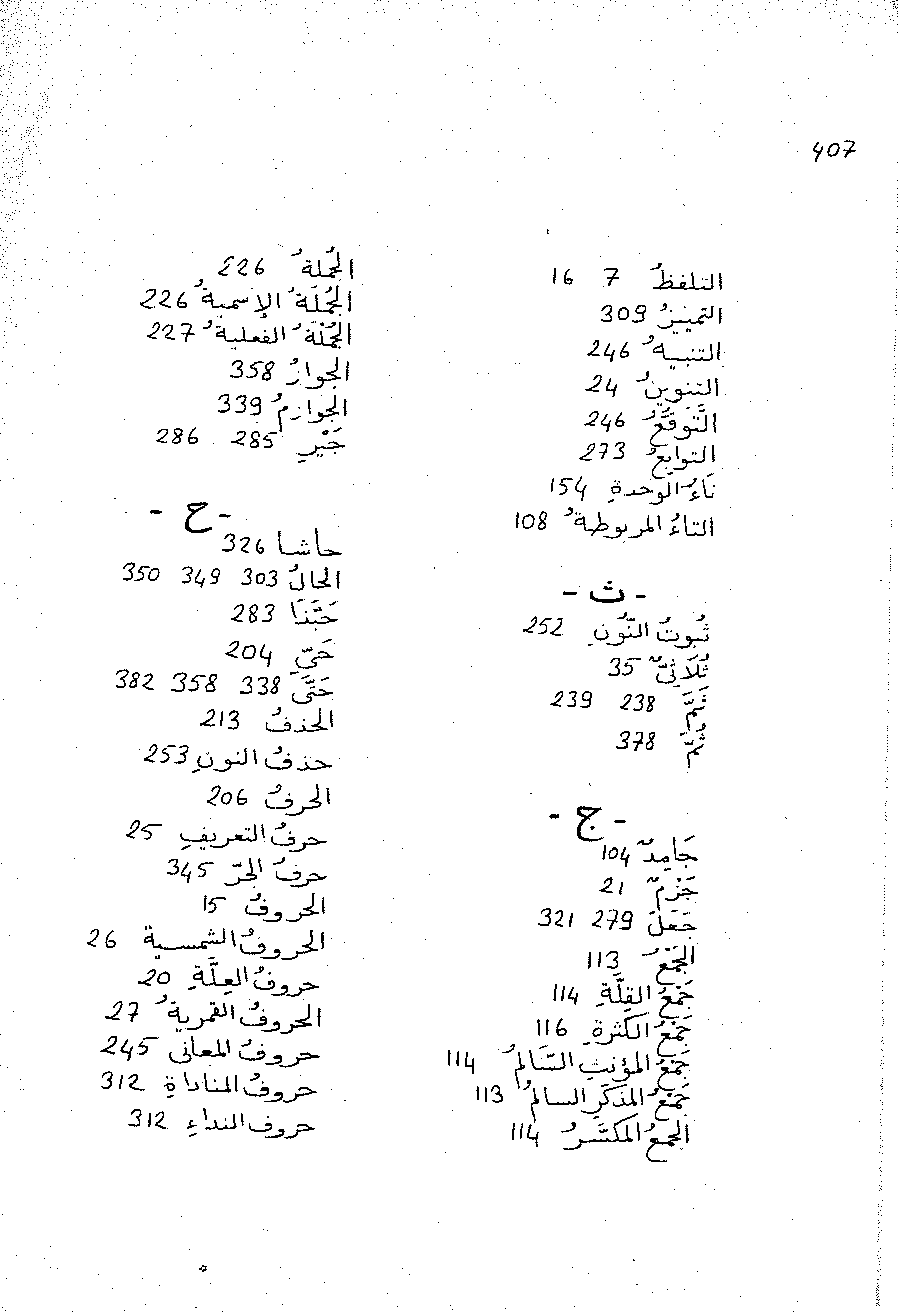 407
التلفظُ 7 16
التمييزُ 309
التنبيهُ 246
التنوينُ 24
التَّوَقُّعُ 246
التوابعُ 273
تاءُ الوحدةِ 154
التاءُ المربوطةُ 108
- ث -
ثُبوتُ النُّونِ 252
ثُلَاثِىٌّ 35
ثَمَّ 238 239
ثُمَّ 378
- ج -
جَامِدٌ 104
جَزْمٌ 21
جَعَلَ 279 321
الجَمْعُ 113
جَمْعُ القِلَّةِ 114
جَمْعُ الكَثرةِ 116
جَمْعُ المؤنثِ السَّالمُ 114
جَمْعُ المذكَّرِ السالمُ 113
الجمعُ المكسَّرُ 114
الجُملةُ 226
الجُمْلَةُ الإسميةُ 226
الجُمْلَةُ الفعليةُ 227
الجوارُ 358
الجوازمُ 339
جَيْرِ 285 286
- ح -
حاشا 326
الحالُ 303 349 350
حَبَّذَا 283
حَىَّ 204
حَتَّى 338 358 382
الحذفُ 213
حذفُ النونِ 253
الحرفُ 206
حرفُ التعريفِ 25
حرفُ الجَرّ 345
الحروفُ 15
الحروفُ الشمسية 26
حروفُ العِلَّةِ 20
الحروفُ القمريةُ 27
حروفُ المعانى 245
حروفُ المناداةِ 312
حروف النداءِ 312